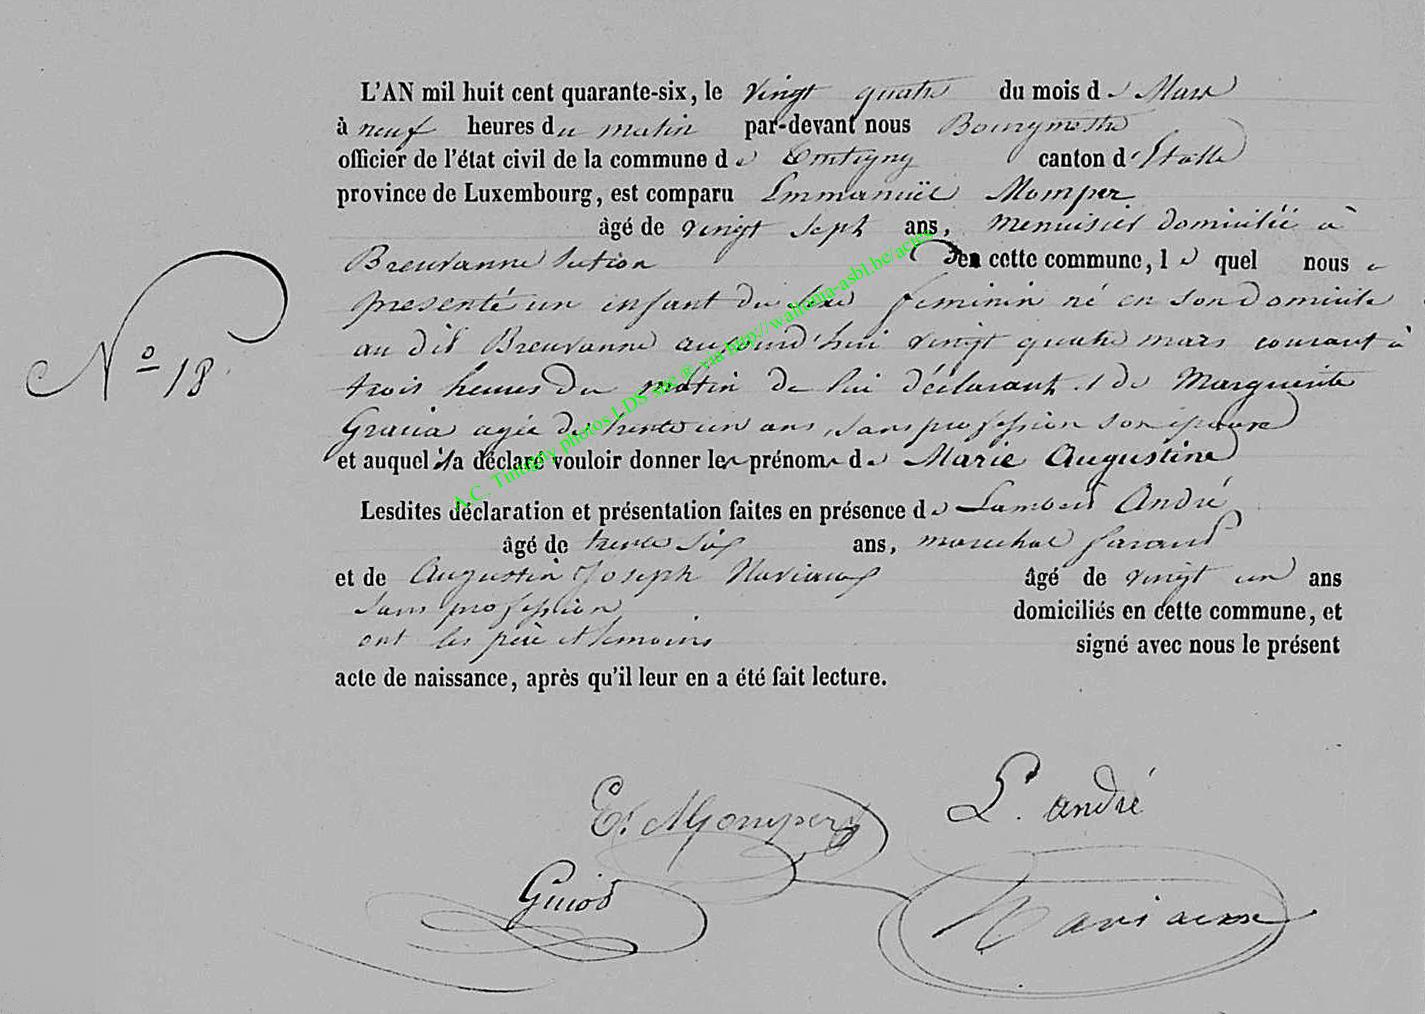 L'AN mil huit cent quarante-six, le vingt quatre du mois de Mars
à neuf heures du matin par-devant nous Bourgmestre
officier de l'état civil de la commune de Tintigny canton d'Etalle
province de Luxembourg, est comparu Emmanuël Momper
âgé de vingt sept ans, menuisier domicilié à
Breuvanne section de cette commune, le quel nous a
présenté un enfant du sexe feminin né en son domicile
au dit Breuvanne aujourd'hui vingt quatre mars courant à
N° 18
trois heures du matin de lui déclarant, & de Marguerite
Gracia agée de trente un ans, sans profession son épouse
et auquel il a déclaré vouloir donner les prénoms de Marie Augustine
Lesdites déclaration et présentation faites en présence de Lambert André
âgé de trente six ans, marechal ferrant
et de Augustin Joseph Naviaux âgé de vingt un ans
sans profession domiciliés en cette commune, et
ont les père et témoins signé avec nous le présent
acte de naissance, après qu'il leur en a été fait lecture.
A.C. Tintigny photos LDS via http://wallonia-asbl.be/actes
E. Momper L. andré
Guiod Naviaux